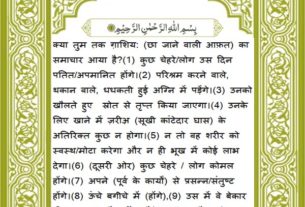 بِسْمِ اللهِ الرَّحْمٰنِ الرَّحِيْمِ
क्या तुम तक गाशिय: (छा जाने वाली आफ़त) का
समाचार आया है?(1) कुछ चेहरे/लोग उस दिन
पतित/अपमानित होंगे।(2) परिश्रम करने वाले,
थकान वाले, धधकती हुई अग्नि में पड़ेंगे।(3) उनको
खौलते हुए स्रोत से तृप्त किया जाएगा।(4) उनके
लिए खाने में ज़रीअ (सूखी कांटेदार घास) के
अतिरिक्त कुछ न होगा।(5) न तो वह शरीर को
स्वस्थ/मोटा करेगा और न ही भूख में कोई लाभ
देगा।(6) (दूसरी ओर) कुछ चेहरे / लोग कोमल
होंगे।(7) अपने (पूर्व के कार्यों) से प्रसन्न/संतुष्ट
होंगे।(8) ऊंचे बगीचे में (होंगे),(9) उस में वे बेकार